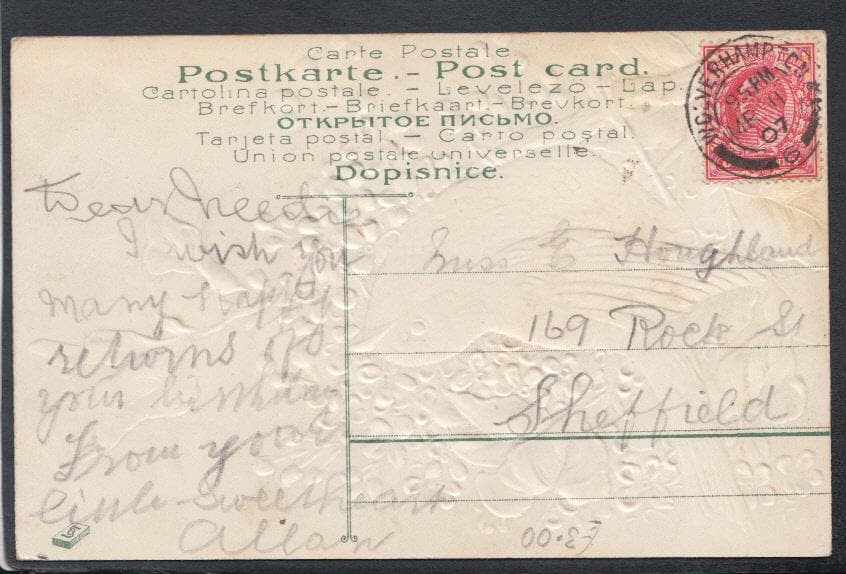 Carte Postale.
Postkarte. - Post card.
Cartolina postale. - Levelező - Lap.
Brefkort. - Briefkaart. - Brevkort.
ОТКРЫТОЕ ПИСЬМО.
Tarjeta postal. - Carto postal.
Union postale universelle.
Dopisnice.
WOLVERHAMPTON
PM
AP 11
07
Dear
I wish you
many happy
returns of
your birthday
From your
little sweetheart
Allan
Miss E Houghland
169 Rock St
Sheffield
£3.00